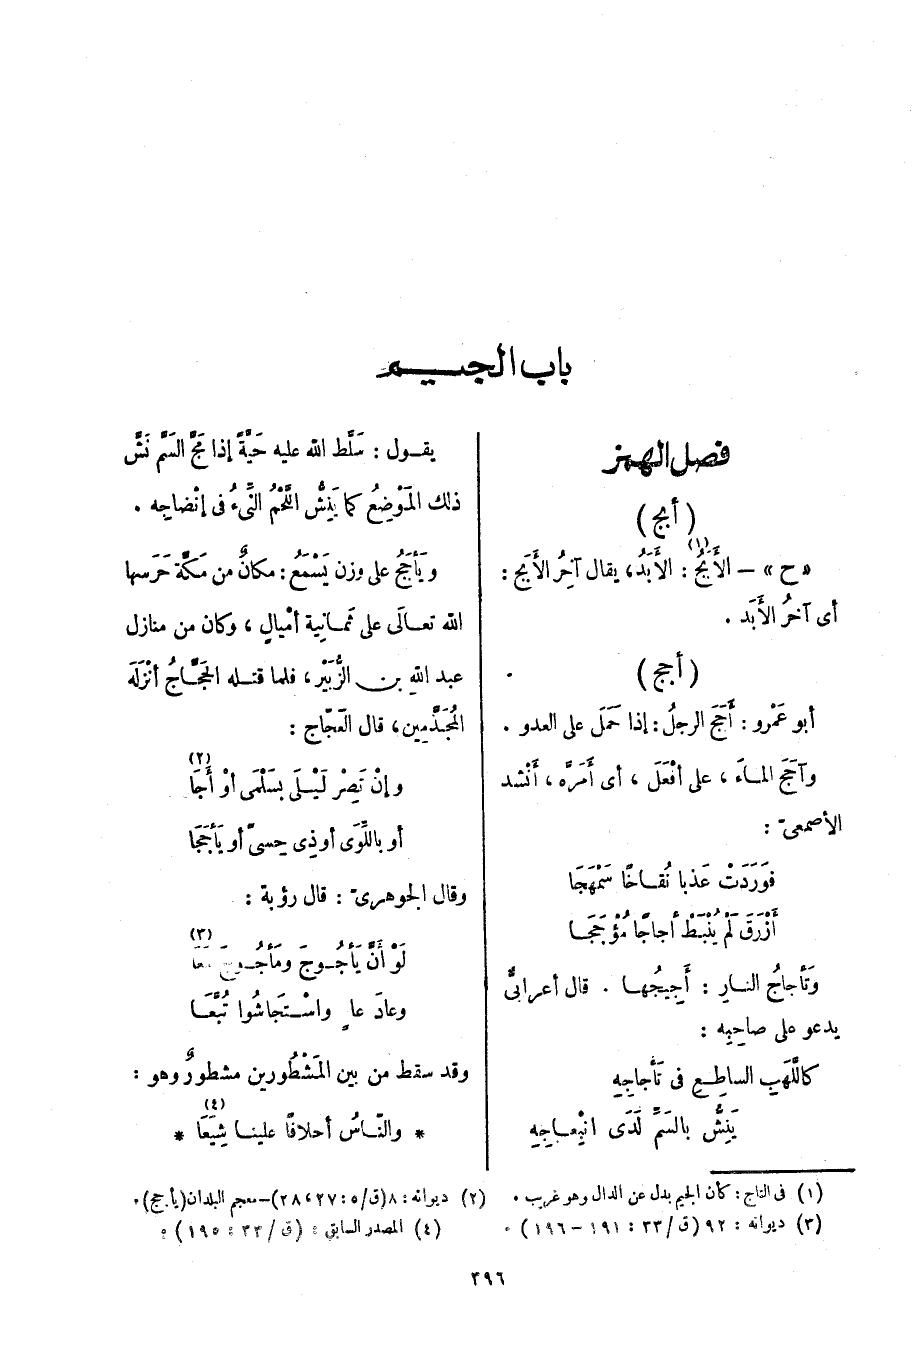 باب الجيم
فصل الهمز
(أبج)
«ح» – الأَبَجُ (١) : الأَبَدُ، يقال آخِرُ الأَبَج :
أى آخرُ الأَبَد .
(أجج)
أبو عَمْرو : أَجَجَ الرجلُ : إذا حَمَل على العدو .
وآجَجَ المـاءَ ، على أفْعَلَ ، أى أَمَرَّه ، أَنْشد
الأصمعىّ :
فَوَرَدَتْ عَذبا نُقـاخًا سَمْهَجَا
أَزْرَقَ لَمْ يُنْبَطْ أجاجًا مُؤْجَجَـا
وتَأجاجُ النـارِ : أَجِيجُهـا . قال أعرابىٌّ
يدعو على صاحِبِه :
كاللَّهَبِ الساطِـعِ فى تَأْجاجِهِ
يَنِشُّ بالسَمِّ لَدَى انْبِعـاجِهِ
يقـول : سَلَّط الله عليه حَيَّةً إذا مَجَّ السَمَّ نَشَّ
ذلك المَوْضِعُ كما يَنِشُّ اللَّحْمُ النَّىءُ فى إنْضاجِه .
ويَأجَجُ على وزن يَسْمَعُ : مكانٌ من مَكّة حَرَسها
الله تعـالَى على ثَمـانِية أمْيالٍ ، وكان من منازل
عبد اللهِ بن الزُّبَيْر ، فلما قتـله الحَجّـاجُ أنْزَلَه
المُجَذَّمِين، قال العَجّاج :
وإنْ تَصِرْ لَيْـلَى بسَلْمَى أوْ أَجَا (٢)
أو باللِّوَى أو ذِى حِسىً أو يَأْجَجَا
وقال الجوهرىّ : قال رؤبة :
لَوْ أنَّ يَأْجُـوجَ ومَأجُـوجَ مَعَا (٣)
وعادَ عادٍ واسْـتَجاشُوا تُبَّعَـا
وقد سقط من بين المَشْطُورين مشطورٌ وهو :
* والنّـاسُ أحلافًا علينـا شِيَعَا (٤) *
(١) فى التاج : كأن الجيم بدل عن الدال وهو غريب .
(٢) ديوانه : ٨ (ق/٥ : ٢٧، ٢٨) – معجم البلدان (يأجج) .
(٣) ديوانه : ٩٢ (ق/٣٣ : ١٩١ – ١٩٦) .
(٤) المصدر السابق : (ق/٣٣ : ١٩٥) .
٣٩٦